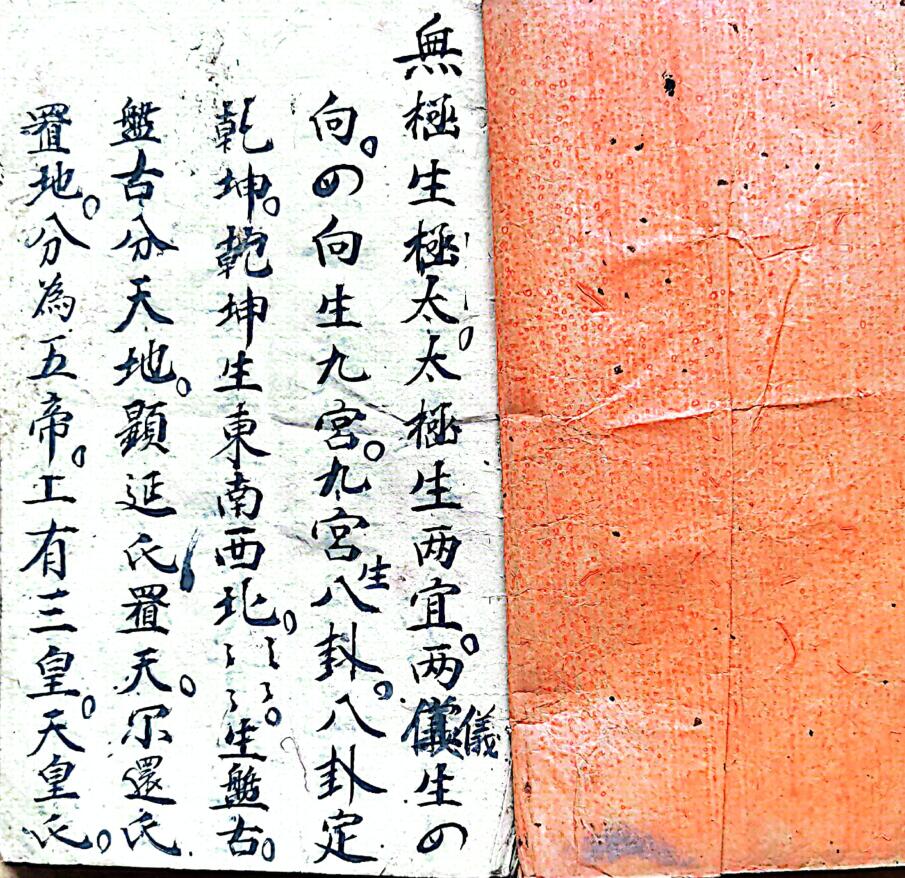 無極生極太。太極生两宜。两儀儀生の
向。の向生九宮。九宮生八卦。八卦定
乾坤。乾坤生東南西北。〻〻〻〻生盤古。
盤古分天地。顕延氏置天。尔還氏
置地。分為五帝。工有三皇。天皇氏。